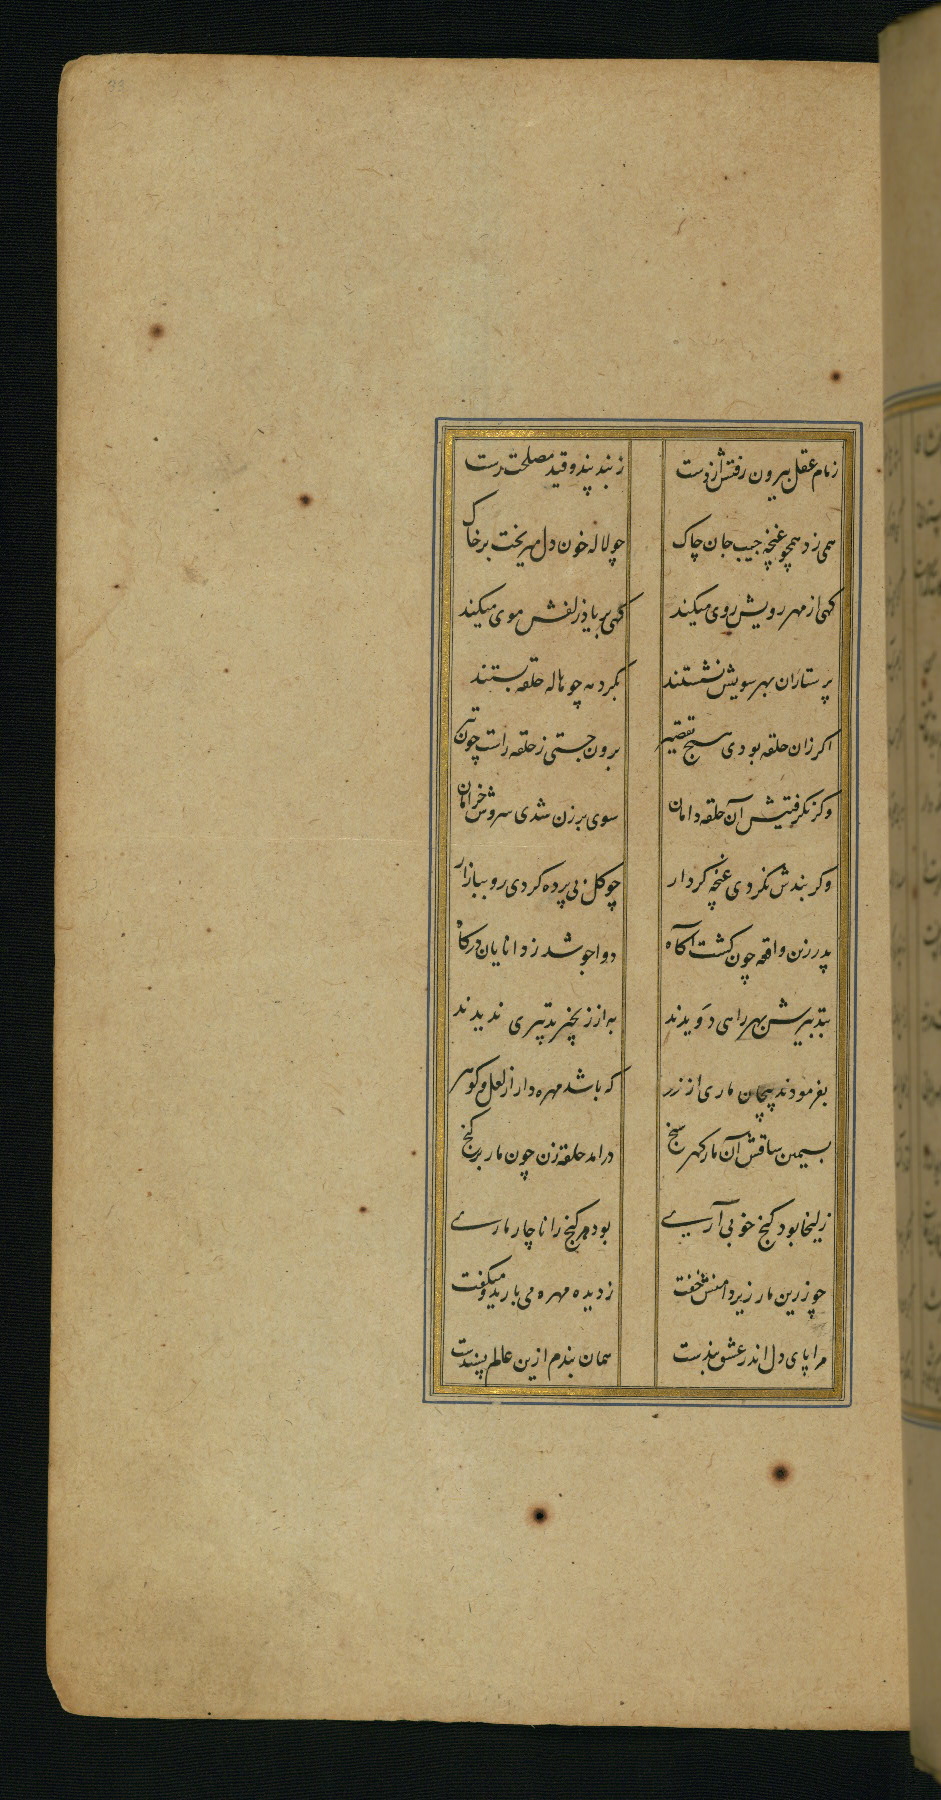 زمام عقل بیرون رفتش از دست   ز بند پند و قید مصلحت رست
همی زد همچو غنچه جیب جان چاک   چو لاله خون دل می‌ریخت بر خاک
کهی از مهر رویش روی میکند   کهی بر یاد زلفش موی میکند
پرستاران بهر سویش نشستند   بکرد مه چو هاله حلقه بستند
اکر زان حلقه بودی هیچ تقصیر   برون جستی ز حلقه راست چون تیر
وکر نکرفتیش آن حلقه دامان   سوی برزن شدی سروش خرامان
وکر بندش نکردی غنچه کردار   چو کل بی پرده کردی رو ببازار
پدر زین واقعه چون کشت آکاه   دواجو شد ز دانایان درکاه
بتدبیرش بهر راهی دویدند   به از زنجیر تدبیری ندیدند
بفرمودند پیچان ماری از زر   که باشد مهره‌دار از لعل و کوهر
بسیمین ساقش آن مار کهر سنج   درامد حلقه زن چون مار بر کنج
زلیخا بود کنج خوبی آری   بود هر کنج را ناچار ماری
چو زرین مار زیر دامنش خفت   ز دیده مهره می بارید و میکفت
مرا پای دل اندر عشق بندست   همان بندم ازین عالم پسندست